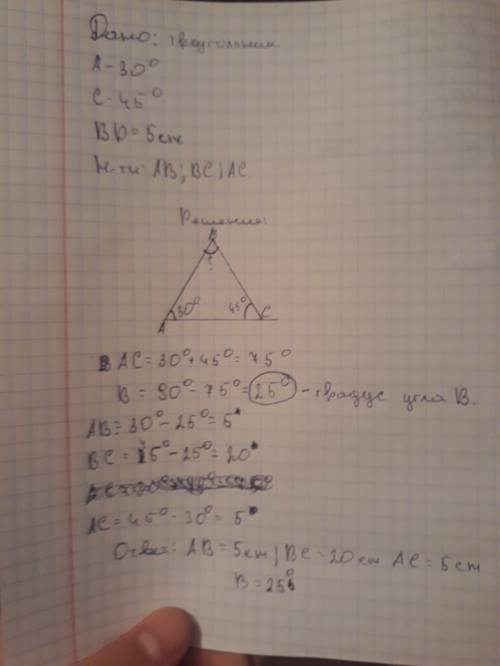 Дано: треугольник
A-30°
C-45°
BD = 5 cm
Н-ти: AB; BC; AC
Решение:
B
?
30°
45°
A
C
AC = 30° + 45° = 75°
B = 90° - 75° = 25° - градус угла B.
AB = 30° - 25° = 5°
BC = 45° - 25° = 20°
AC = 45° - 30° = 5°
Ответ: AB = 5 cm; BC = 20 см AC = 5 cm
B = 25°